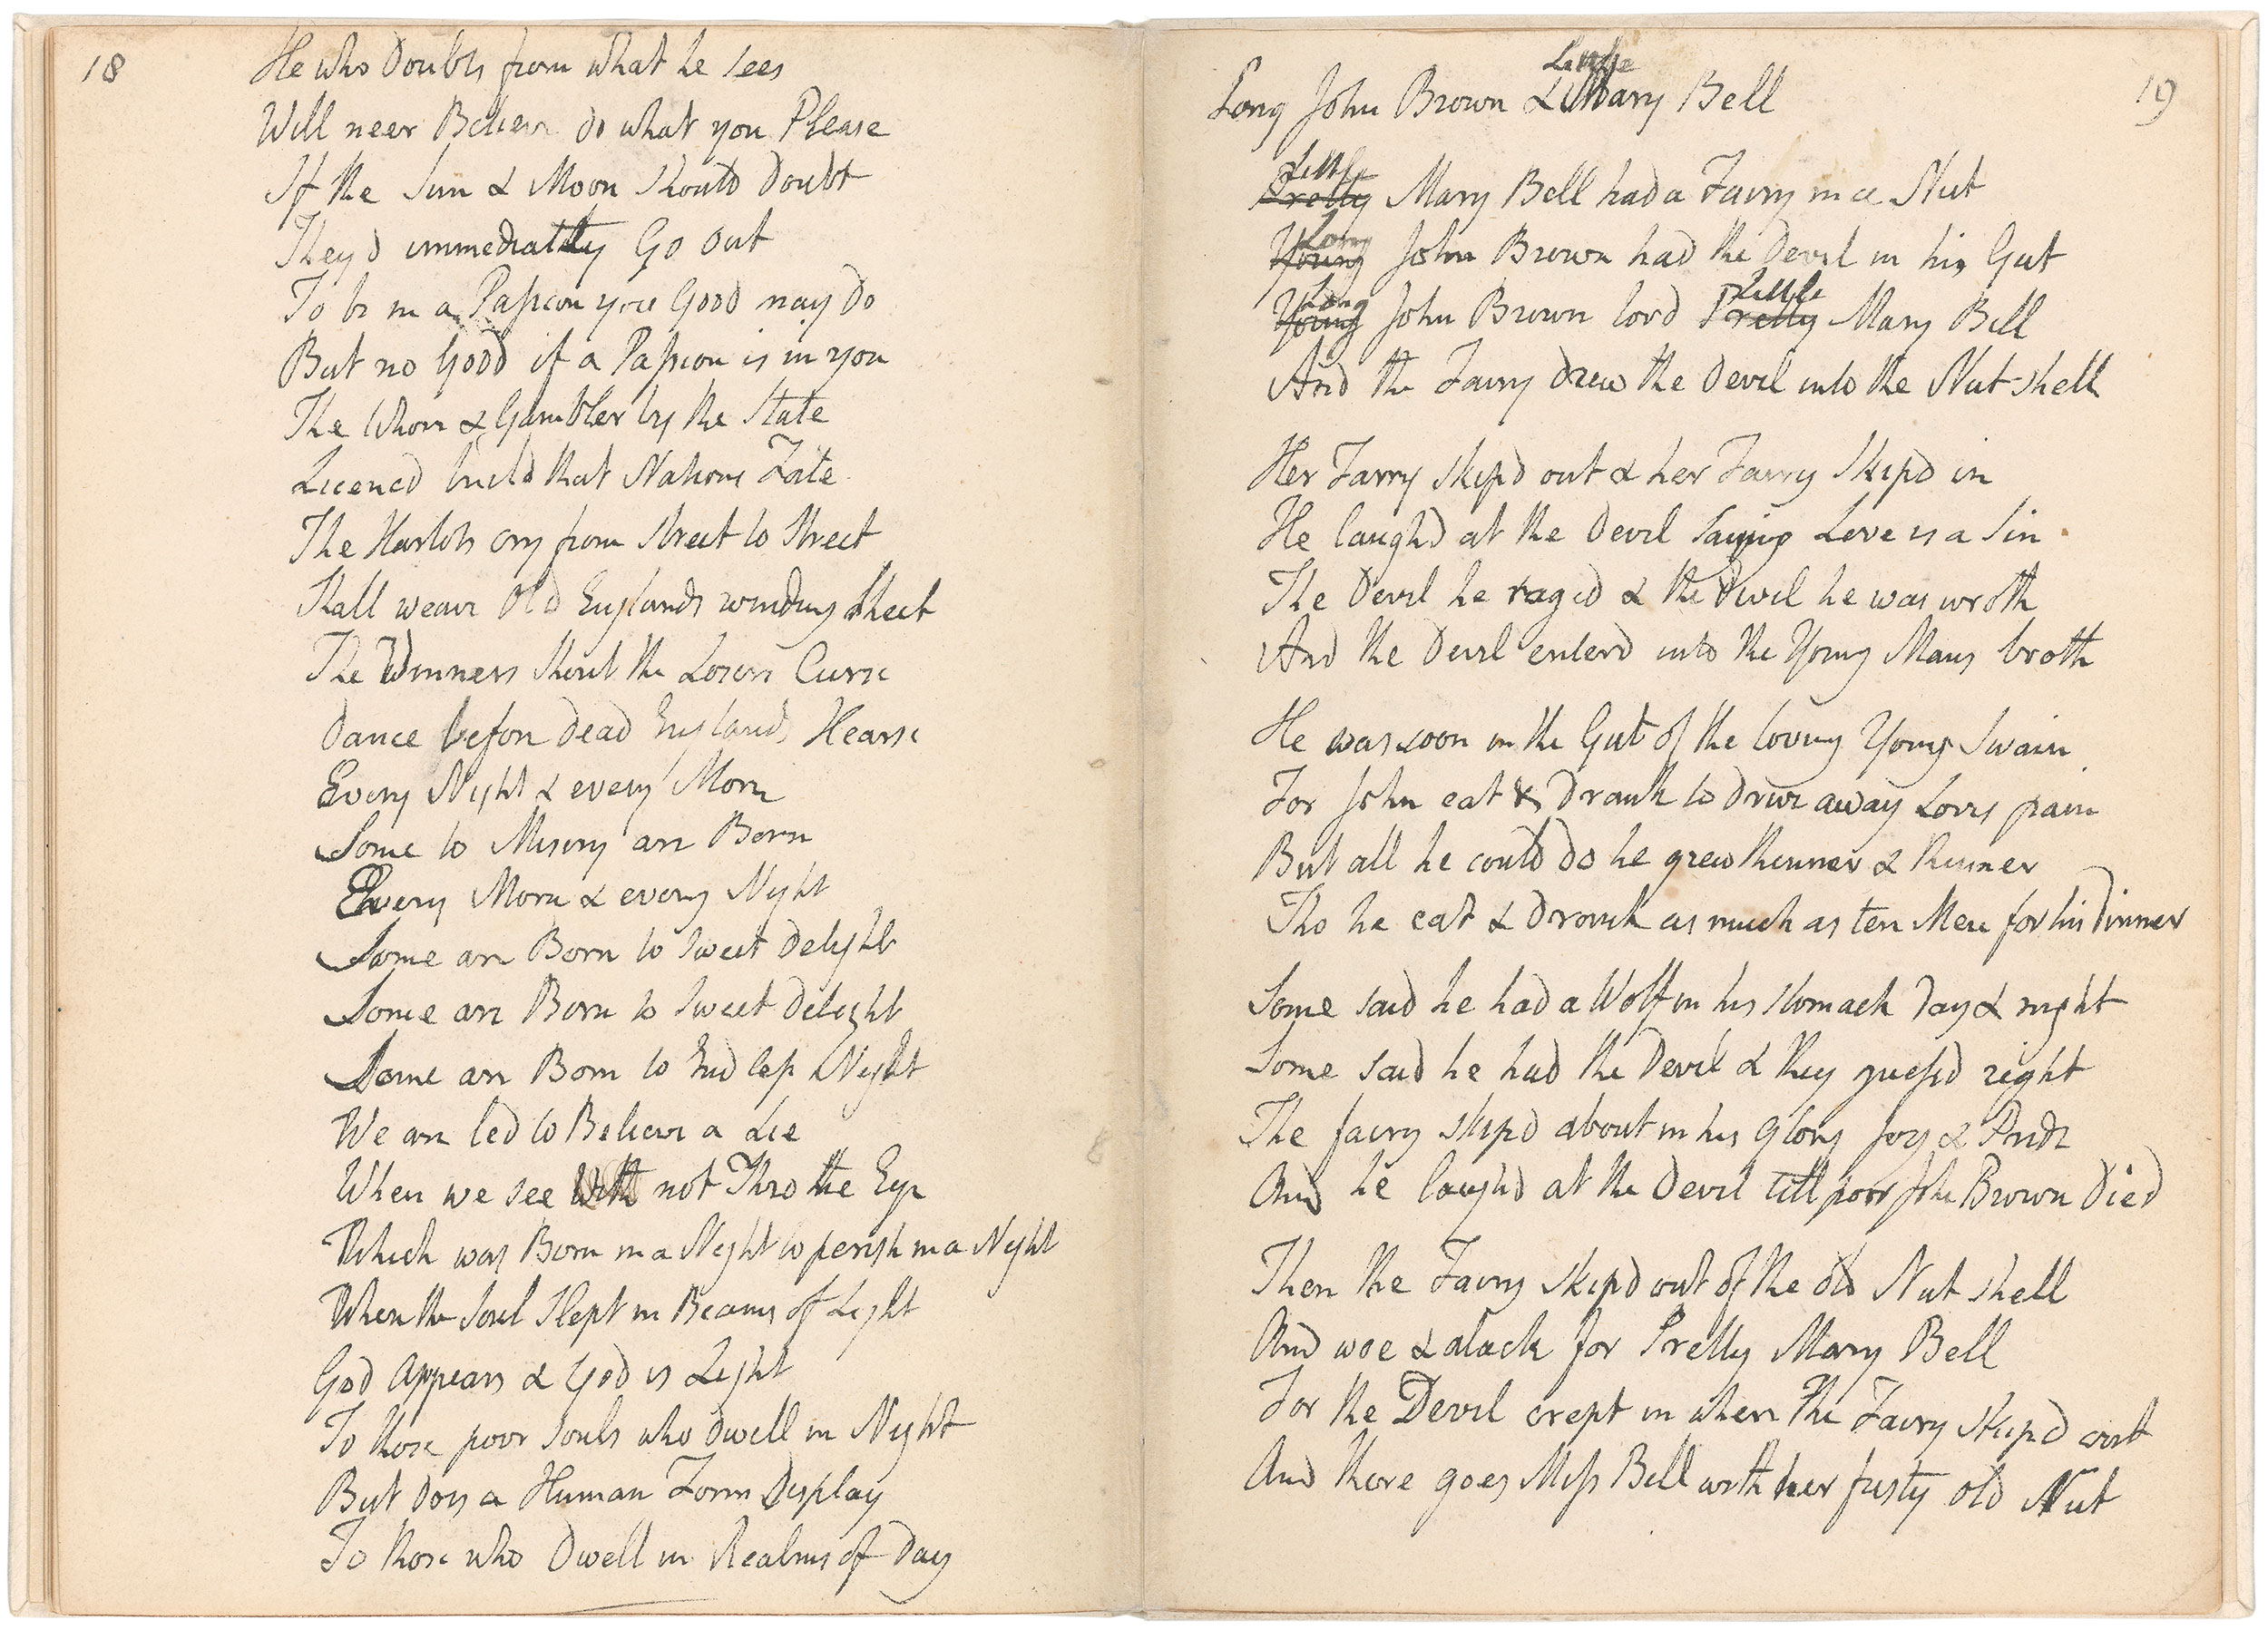 18
He who Doubts from what he sees
Will neer Believe do what you Please
If the Sun & Moon should doubt
Theyd immediately Go out
To be in a Passion you Good may do
But no Good if a Passion is in you
The Whore & Gambler by the State
Licencd build that Nations Fate
The Harlots cry from Street to Street
Shall weave Old Englands winding Sheet
The Winners Shout the Losers Curse
Dance before dead Englands Hearse
Every Night & every Morn
Some to Misery are Born
Every Morn & every Night
Some are Born to sweet delight
Some are Born to sweet delight
Some are Born to Endless Night
We are led to Believe a Lie
When we see With not Thro the Eye
Which was Born in a Night to perish in a Night
When the Soul Slept in Beams of Light
God Appears & God is Light
To those poor Souls who dwell in Night
But does a Human Form Display
To those who Dwell in Realms of Day
19
Little
Long John Brown & Mary Bell
Little
Pretty Mary Bell had a Fairy in a Nut
Long
Young John Brown had the Devil in his Gut
Long Little
Young John Brown lovd Pretty Mary Bell
And the Fairy drew the Devil into the Nut-shell
Her Fairy Skipd out & her Fairy Skipd in
He laughd at the Devil saying Love is a Sin
The Devil he raged & the Devil he was wroth
And the Devil enterd into the Young Mans broth
He was soon in the Gut of the loving Young Swain
For John eat & drank to drive away Loves pain
But all he could do he grew thinner & thinner
Tho he eat & drank as much as ten Men for his dinner
Some said he had a Wolf in his stomach day & night
Some said he had the Devil & they guessd right
The fairy skipd about in his Glory Joy & Pride
And he laughd at the Devil till poor John Brown died
Then the Fairy skipd out of the old Nut shell
And woe & alack for Pretty Mary Bell
For the Devil crept in when The Fairy skipd out
And there goes Miss Bell with her fusty old Nut